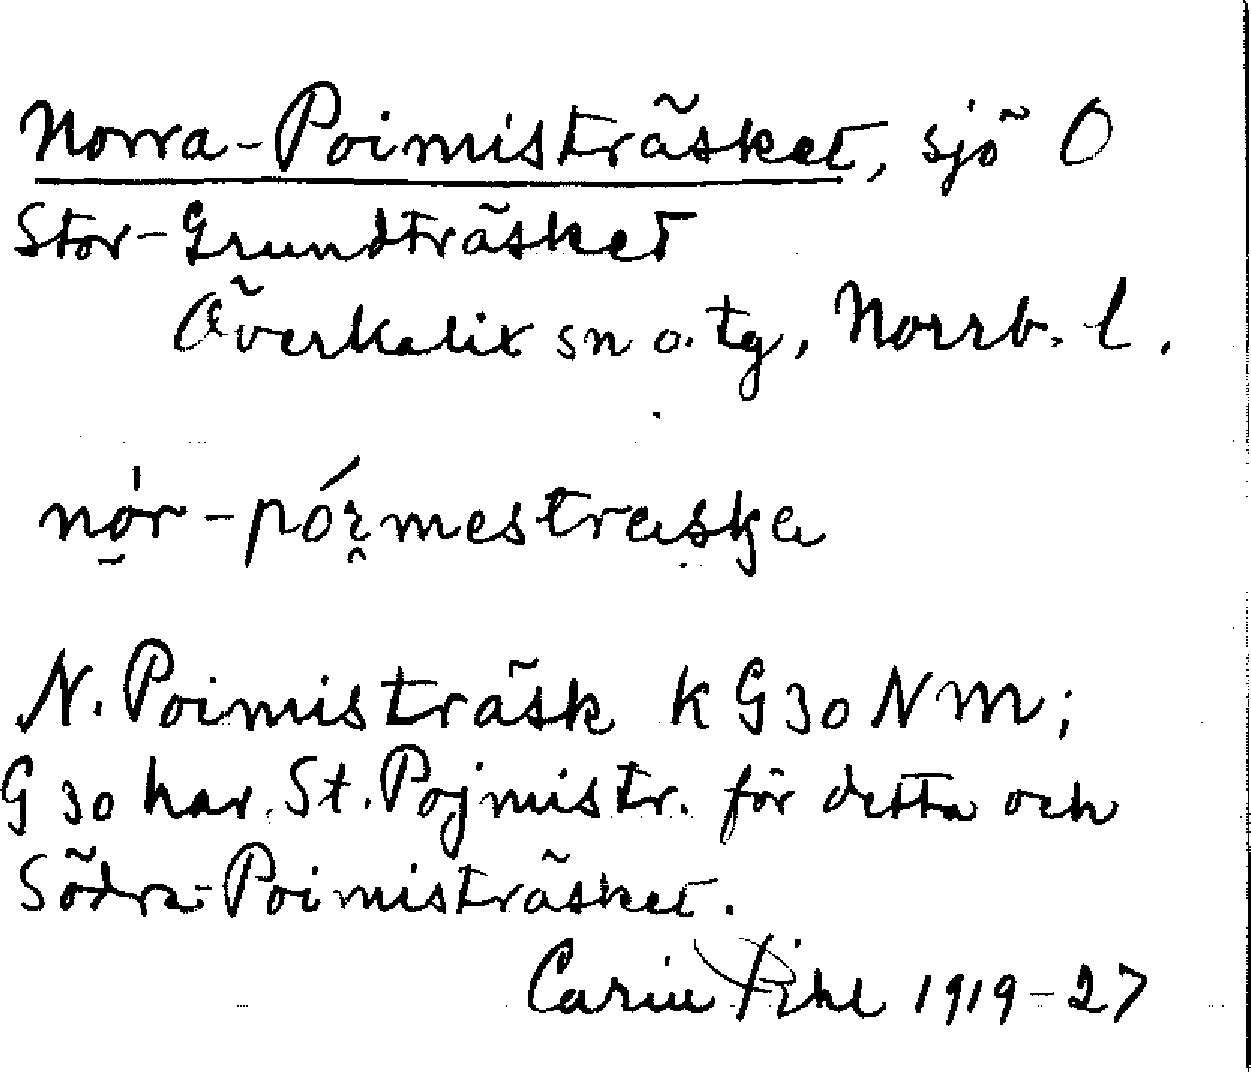 Norra-Poimisträsket, sjö O
Stor-Grundträsket
Överkalix sn o. tg, Norrb. l.
N. Poimisträsk k G30NM;
G30 har St. Pojmistr. för detta och
Södra-Poimisträsket.
Carin Pihl 1919-27